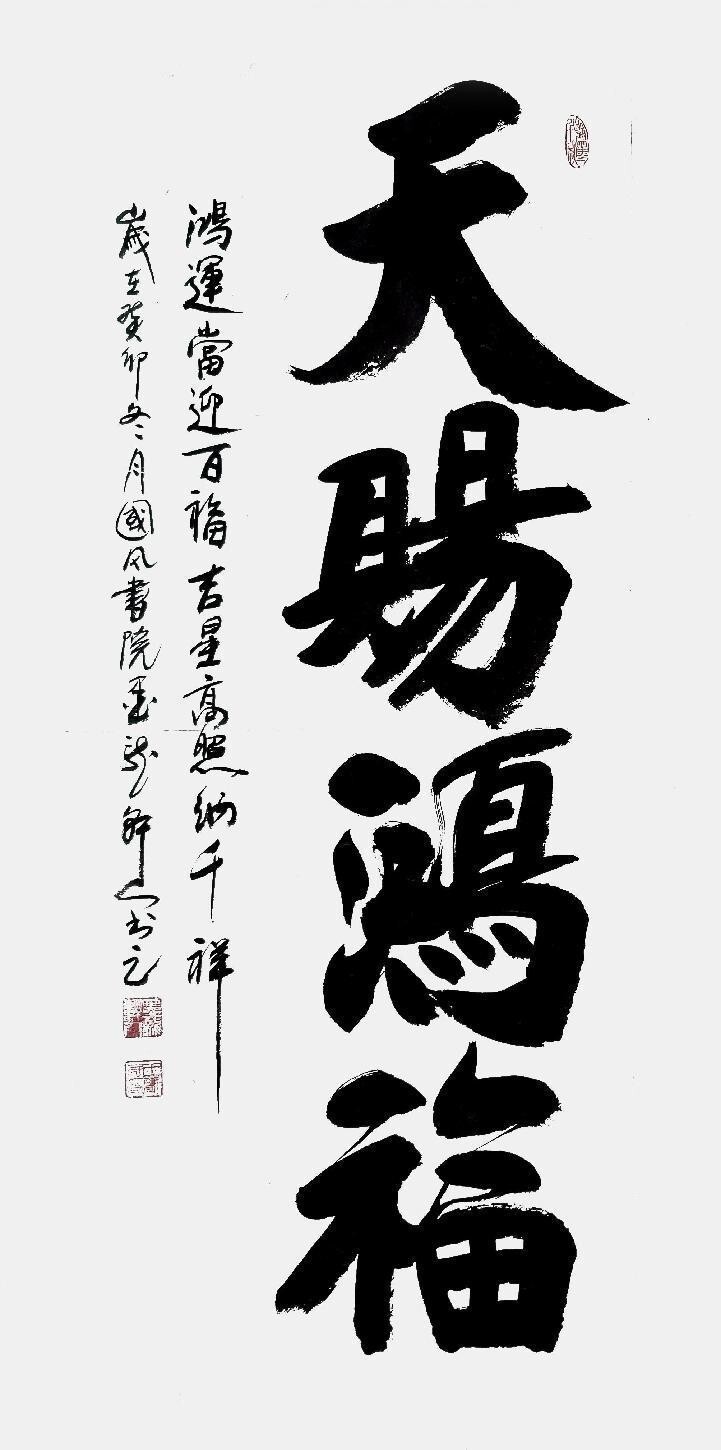 天賜鴻福
鴻運當迎百福吉星高照納千祥
歲在癸卯冬月國风書院墨龍軒人书之